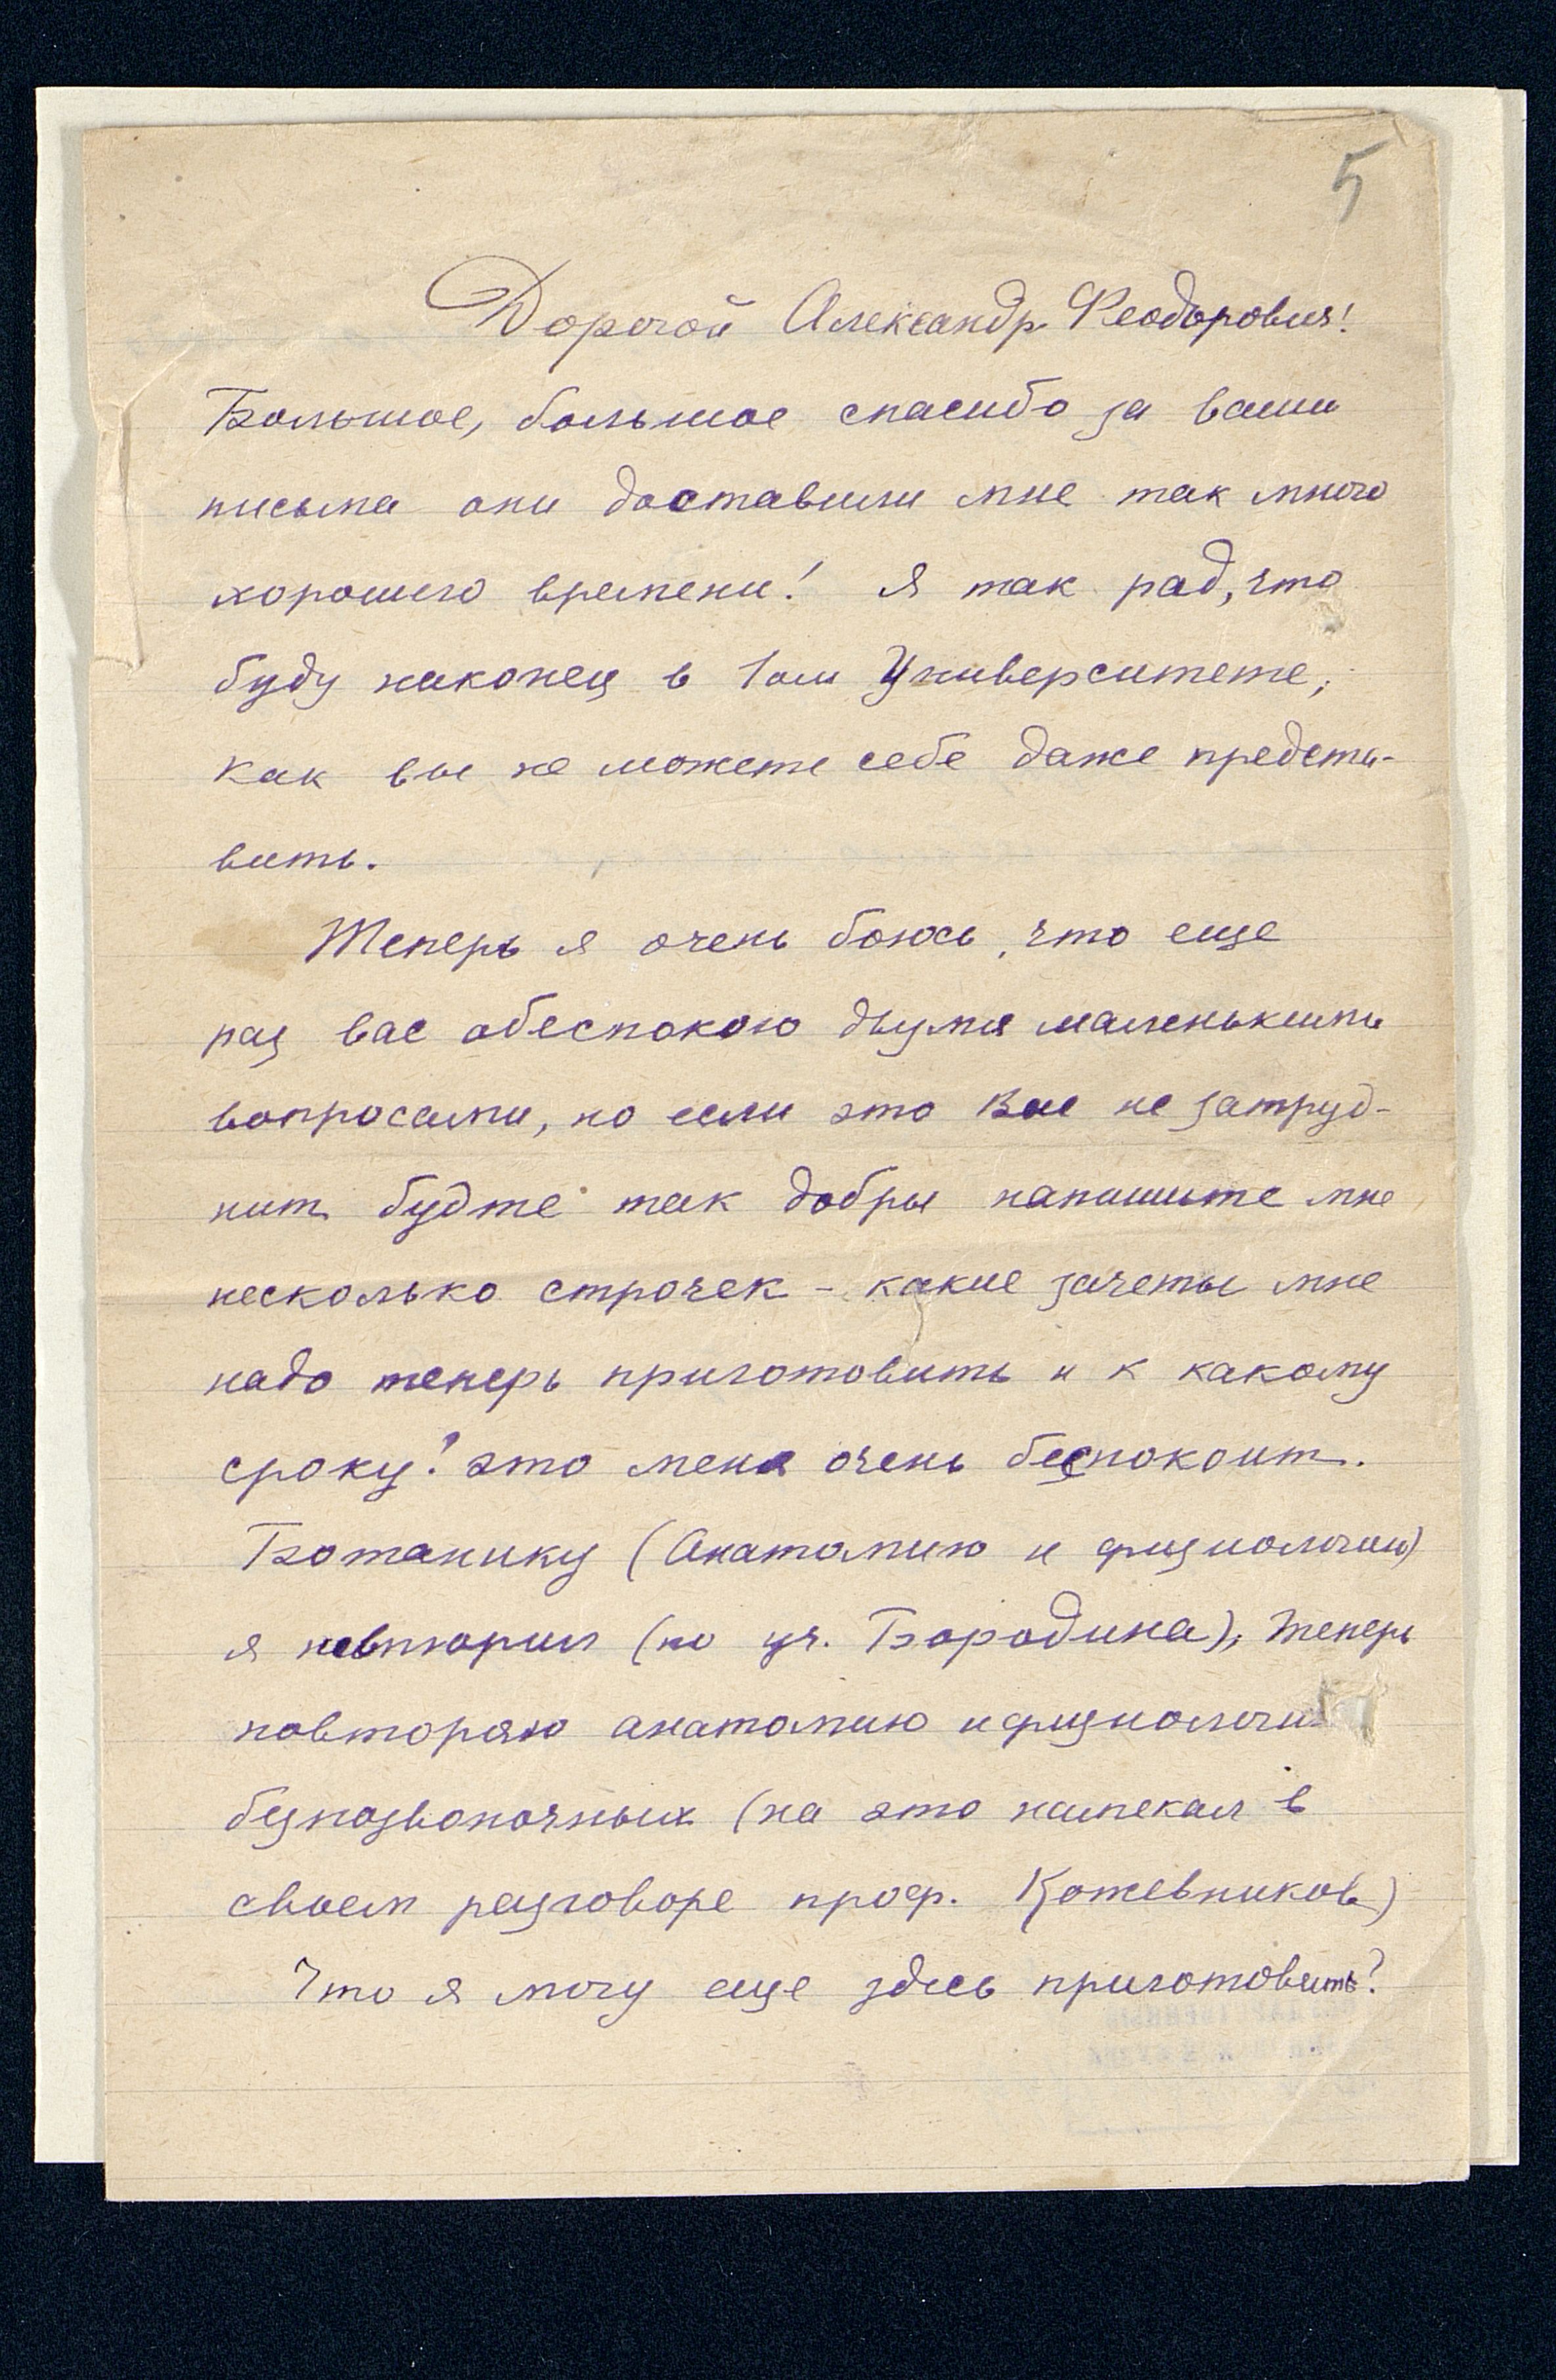 5
Дорогой Александр Феодорович!
Большое, большое спасибо за ваши
письма они доставили мне так много
хорошего времени! Я так рад, что
буду наконец в 1ом Университете,
как вы не можете себе даже предста-
вить.
Теперь я очень боюсь, что еще
раз вас обеспокою двумя маленькими
вопросами, но если это Вас не затруд-
нит будте так добры напишите мне
несколько строчек - какие зачеты мне
надо теперь приготовить и к какому
сроку? это меня очень беспокоит.
Ботанику (Анатомию и физиологию)
я повторил (по уч. Бородина), теперь
повторяю анатомию и физиологи
безпозвоночных (на это намекал в
своем разговоре проф. Кожевников)
Что я могу еще здесь приготовить?